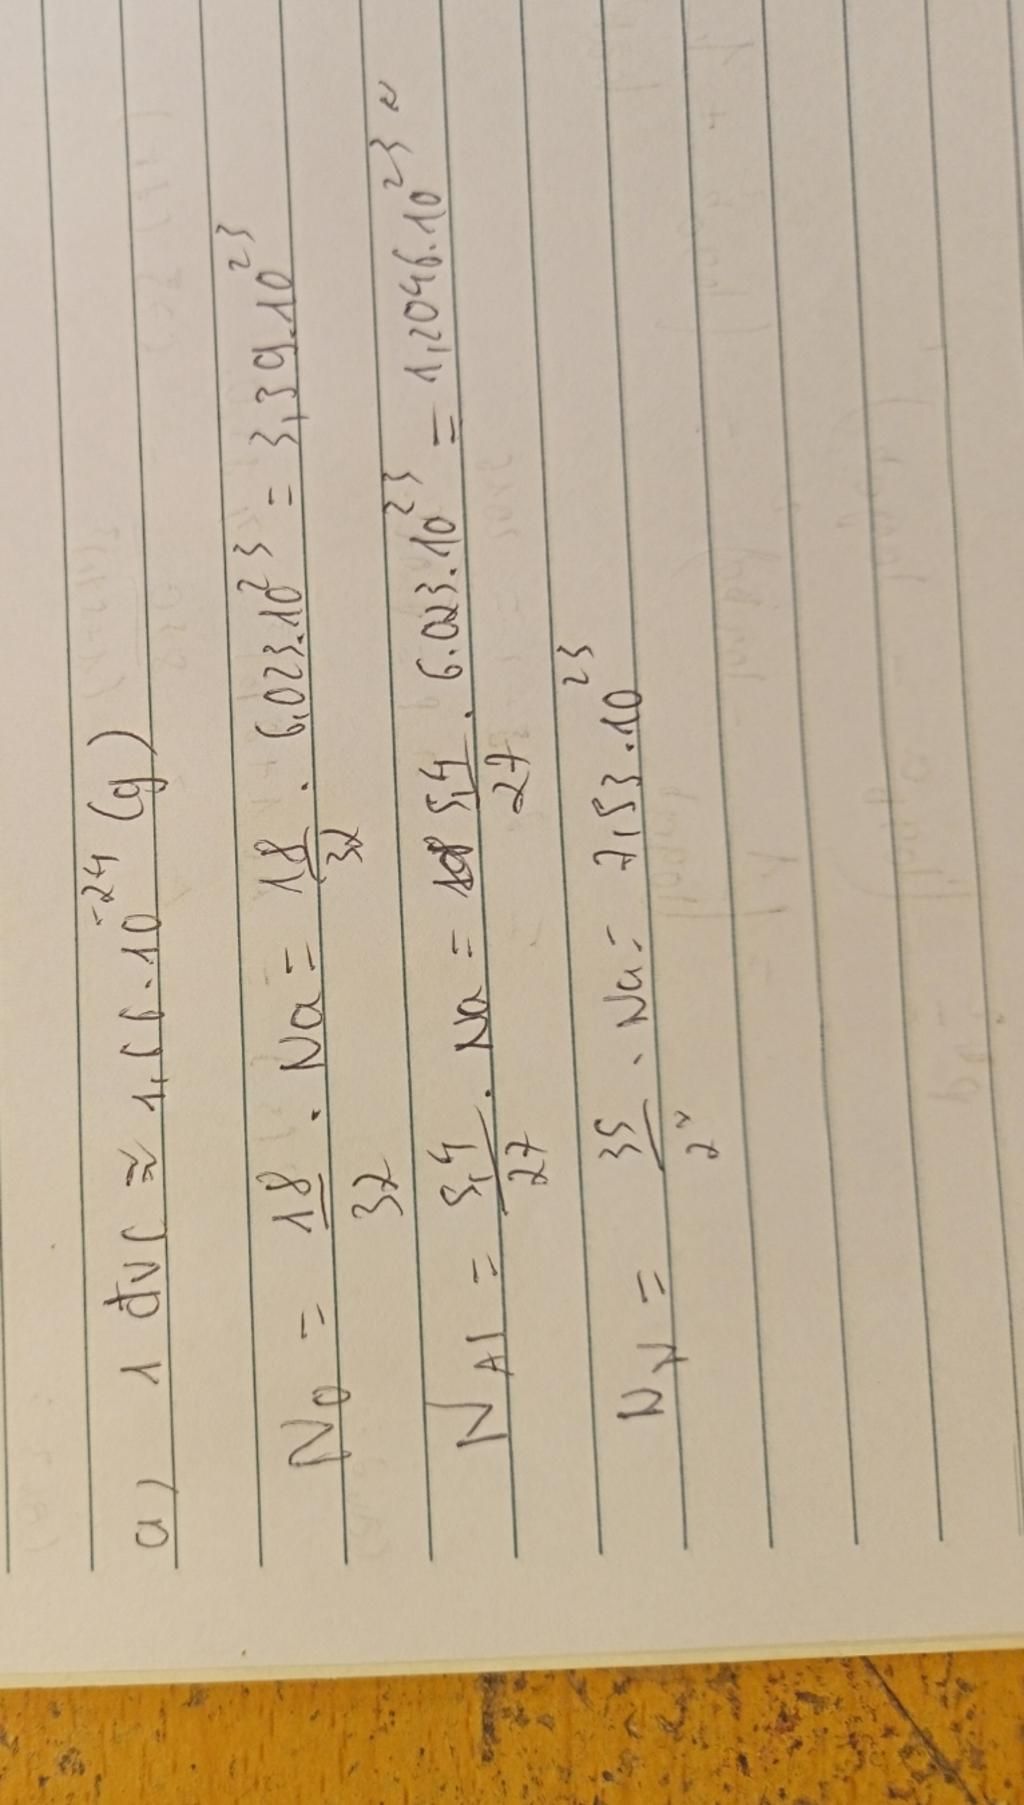 a) 1 đvC ≈ 1,66.10^-24 (g)
N_O = 18/32 . Na = 18/32 . 6,023.10^23 = 3,39.10^23
N_Al = 5,4/27 . Na = 5,4/27 . 6.023.10^23 = 1,2046.10^23
N_N = 35/28 . Na = 7,53.10^23